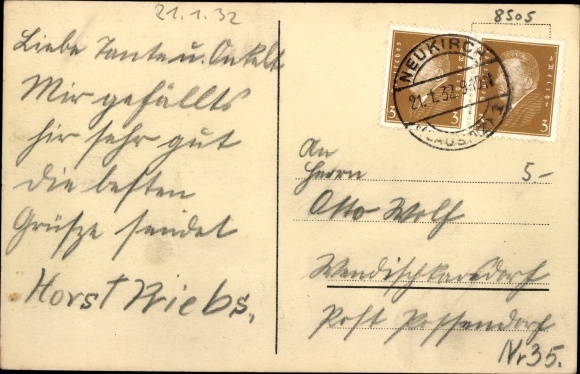 21.1.32
8505
Liebe Tante u. Onkel
Mir gefällts
hir sehr gut
die besten
Grüsze sendet
Horst Briebs.
NEUKIRCH
21.1.32
3 3
An
Herrn 5.-
Otto Wolf
Wendischkarsdorf
Post Possendorf
Nr 35.